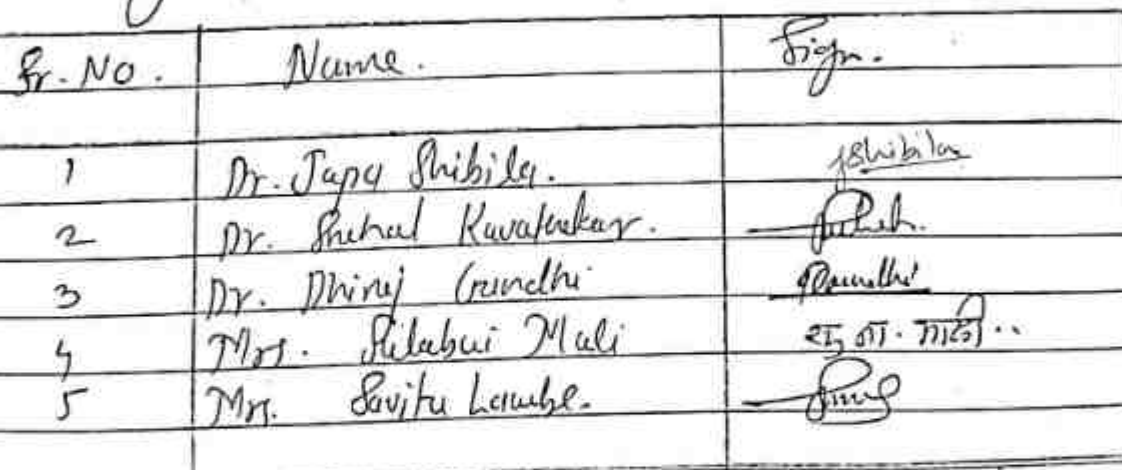 Sr. No. Name. Sign.
1 Dr. Japa Shibila. jshibila
2 Dr. Snehal Kavathekar.
3 Dr. Dhiraj Gandhi
4 Mrs. Shilabai Mali माळी..
5 Mrs. Savita Lambe.